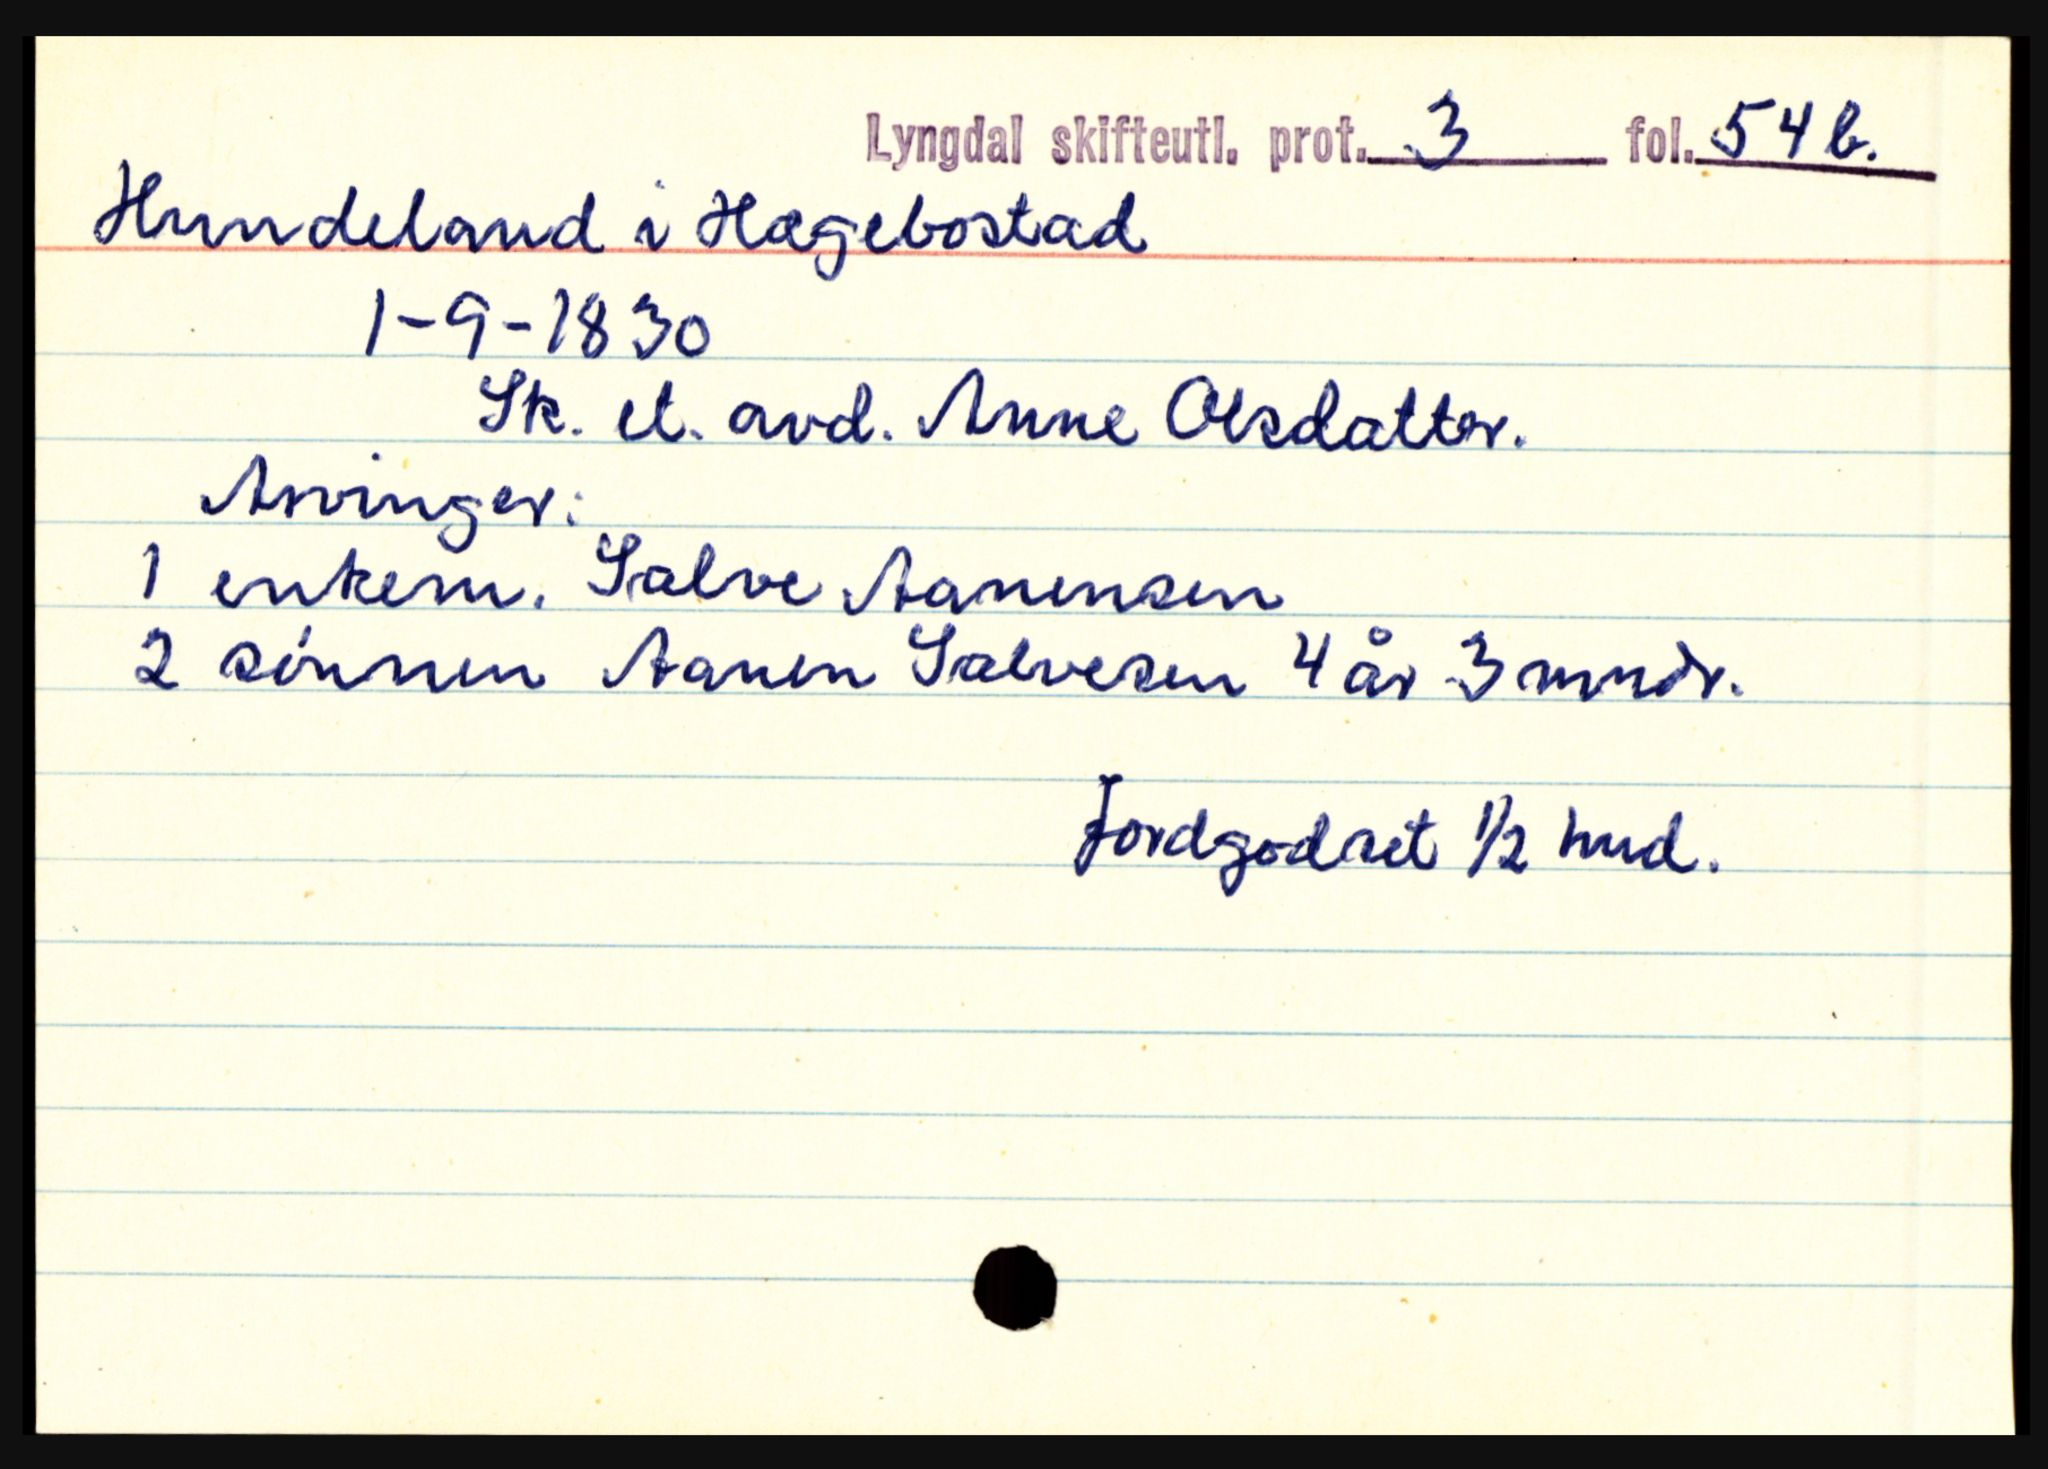 Lyngdal skifteutl. prot. 3 fol. 54 b.
Hundeland i Hægebostad
1-9-1830
Sk. et. avd. Anne Olsdatter.
Arvinger:
1 enkem. Salve Aanensen
2 sønnen Aanen Salvesen 4 år 3 mndr.
Jordgodset 1/2 hud.